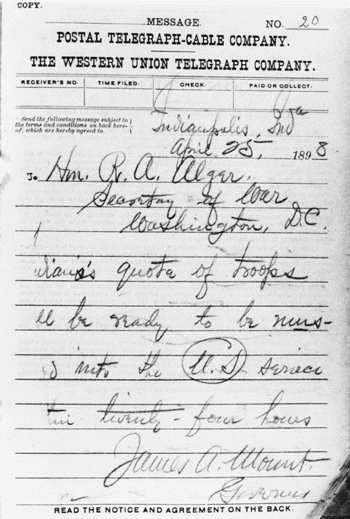 COPY.
MESSAGE. NO. 20
POSTAL TELEGRAPH-CABLE COMPANY.
THE WESTERN UNION TELEGRAPH COMPANY.
RECEIVER'S NO. TIME FILED. CHECK. PAID OR COLLECT.
Send the following message subject to
the terms and conditions on back here-
of, which are hereby agreed to.
Indianapolis, Inda
April 25, 1898
To Hon. R. A. Alger.
Secretary of War
Washington, D.C.
diana's quota of troops
ll be ready to be mus-
d into the U.S. service
twenty-four hours
James A. Mount.
Governor
READ THE NOTICE AND AGREEMENT ON THE BACK.